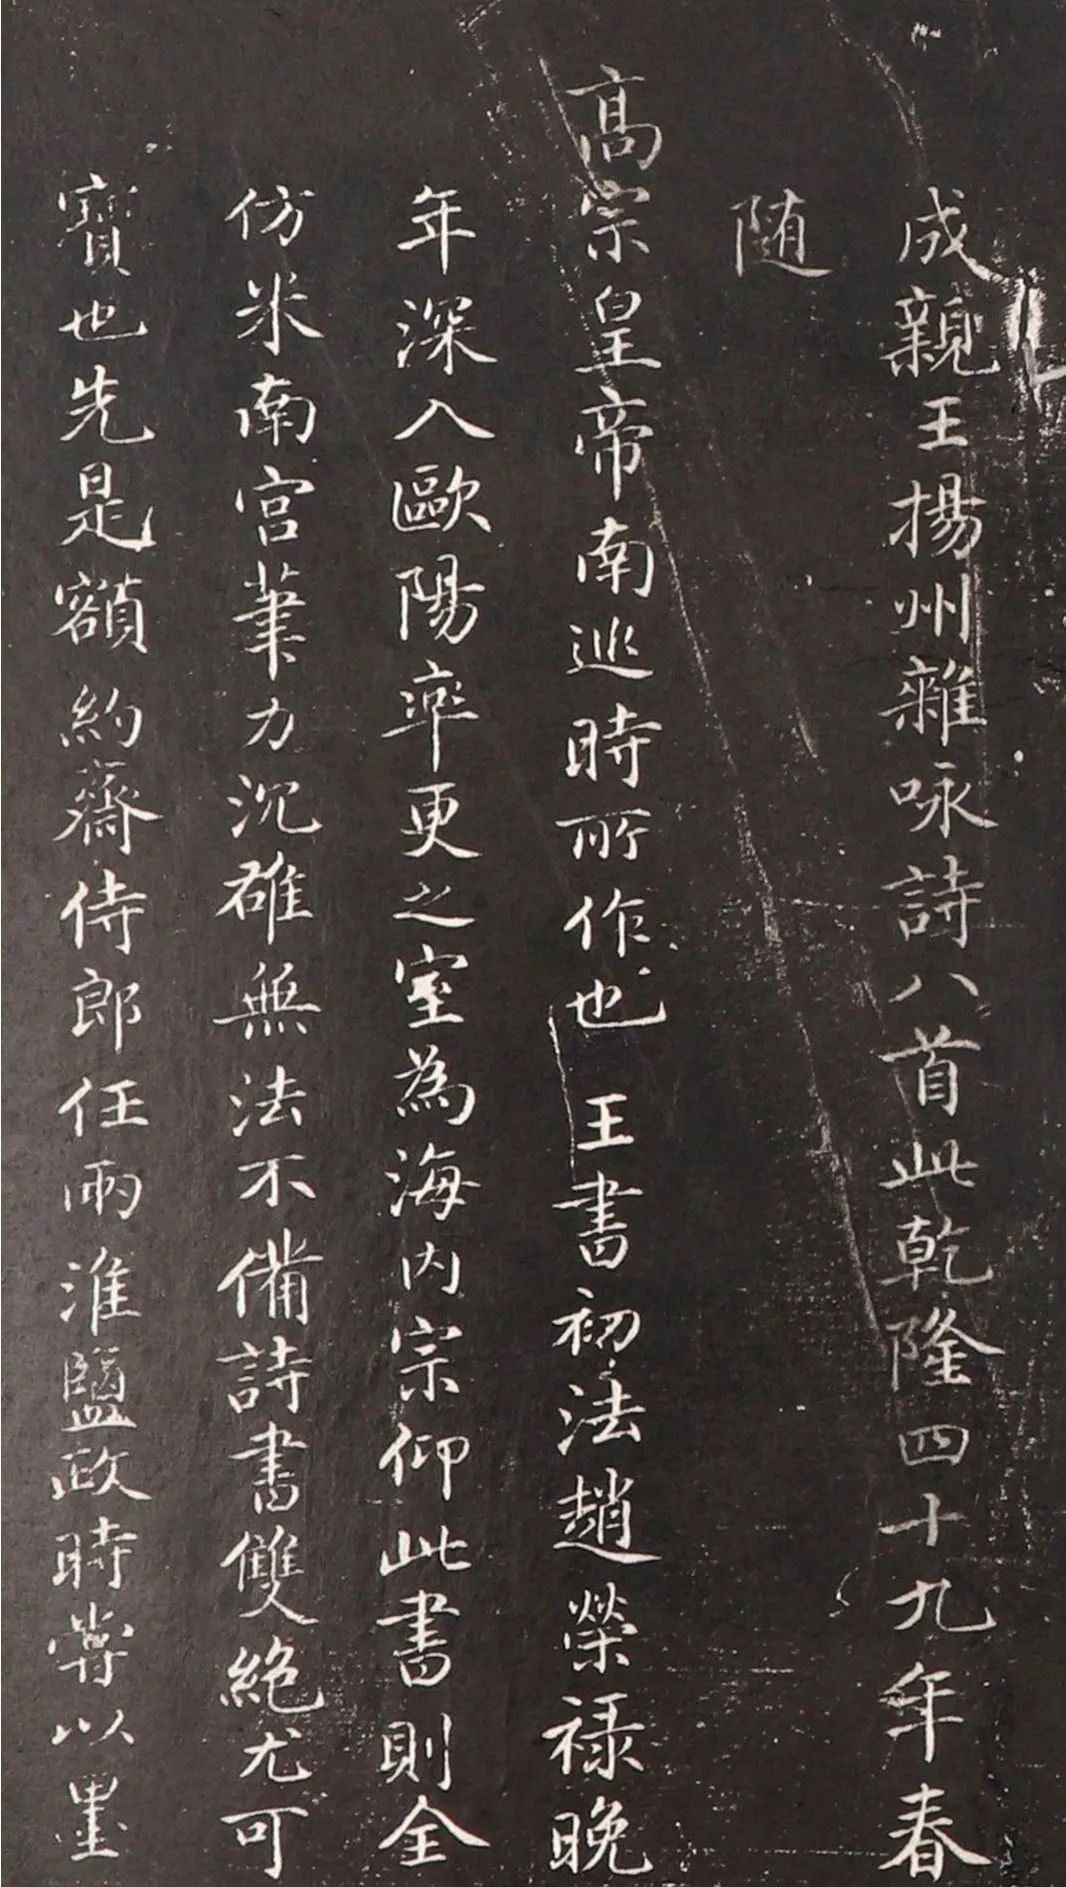 成親王揚州雜咏詩八首此乾隆四十九年春
随
髙宗皇帝南巡時所作也王書初法趙榮禄晚
年深入歐陽率更之室為海内宗仰此書則全
仿米南宫筆力沉雄無法不備詩書雙絶尤可
寶也先是額約齋侍郎任兩淮鹽政時甞以墨